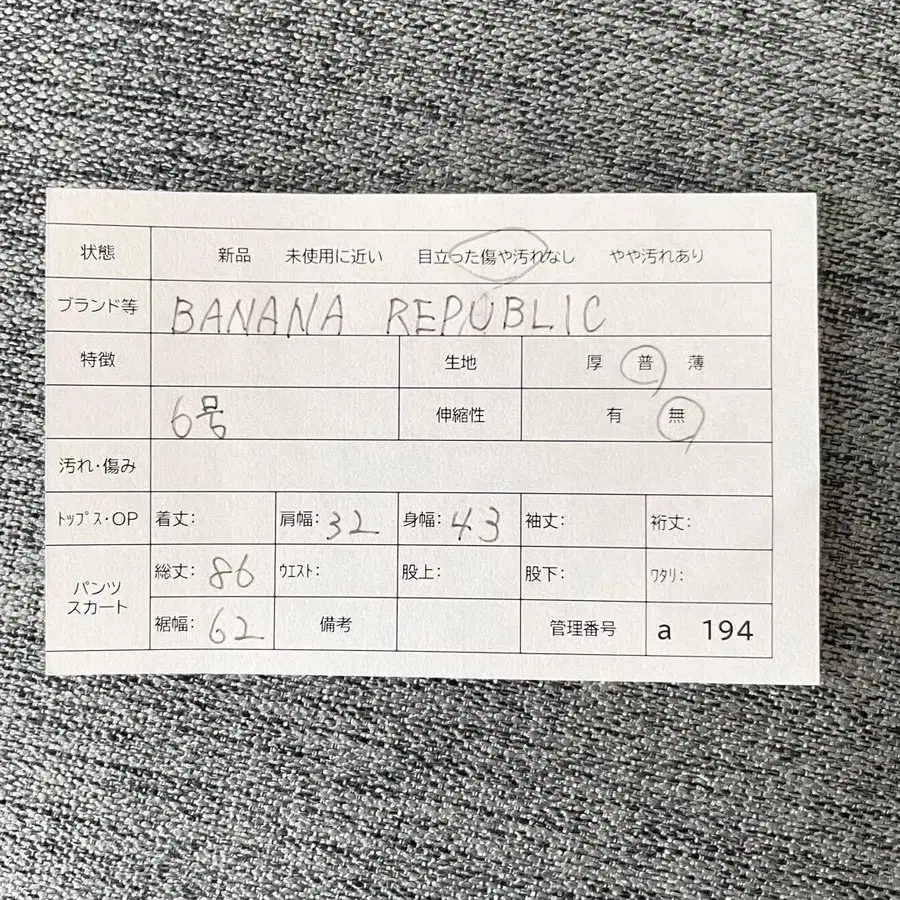 状態 新品 未使用に近い 目立った傷や汚れなし やや汚れあり
ブランド等 BANANA REPUBLIC
特徴 生地 厚 普 薄
6号 伸縮性 有 無
汚れ・傷み
ﾄｯﾌﾟｽ・OP 着丈: 肩幅: 32 身幅: 43 袖丈: 裄丈:
パンツ スカート 総丈: 86 ｳｴｽﾄ: 股上: 股下: ﾜﾀﾘ:
裾幅: 62 備考 管理番号 a 194